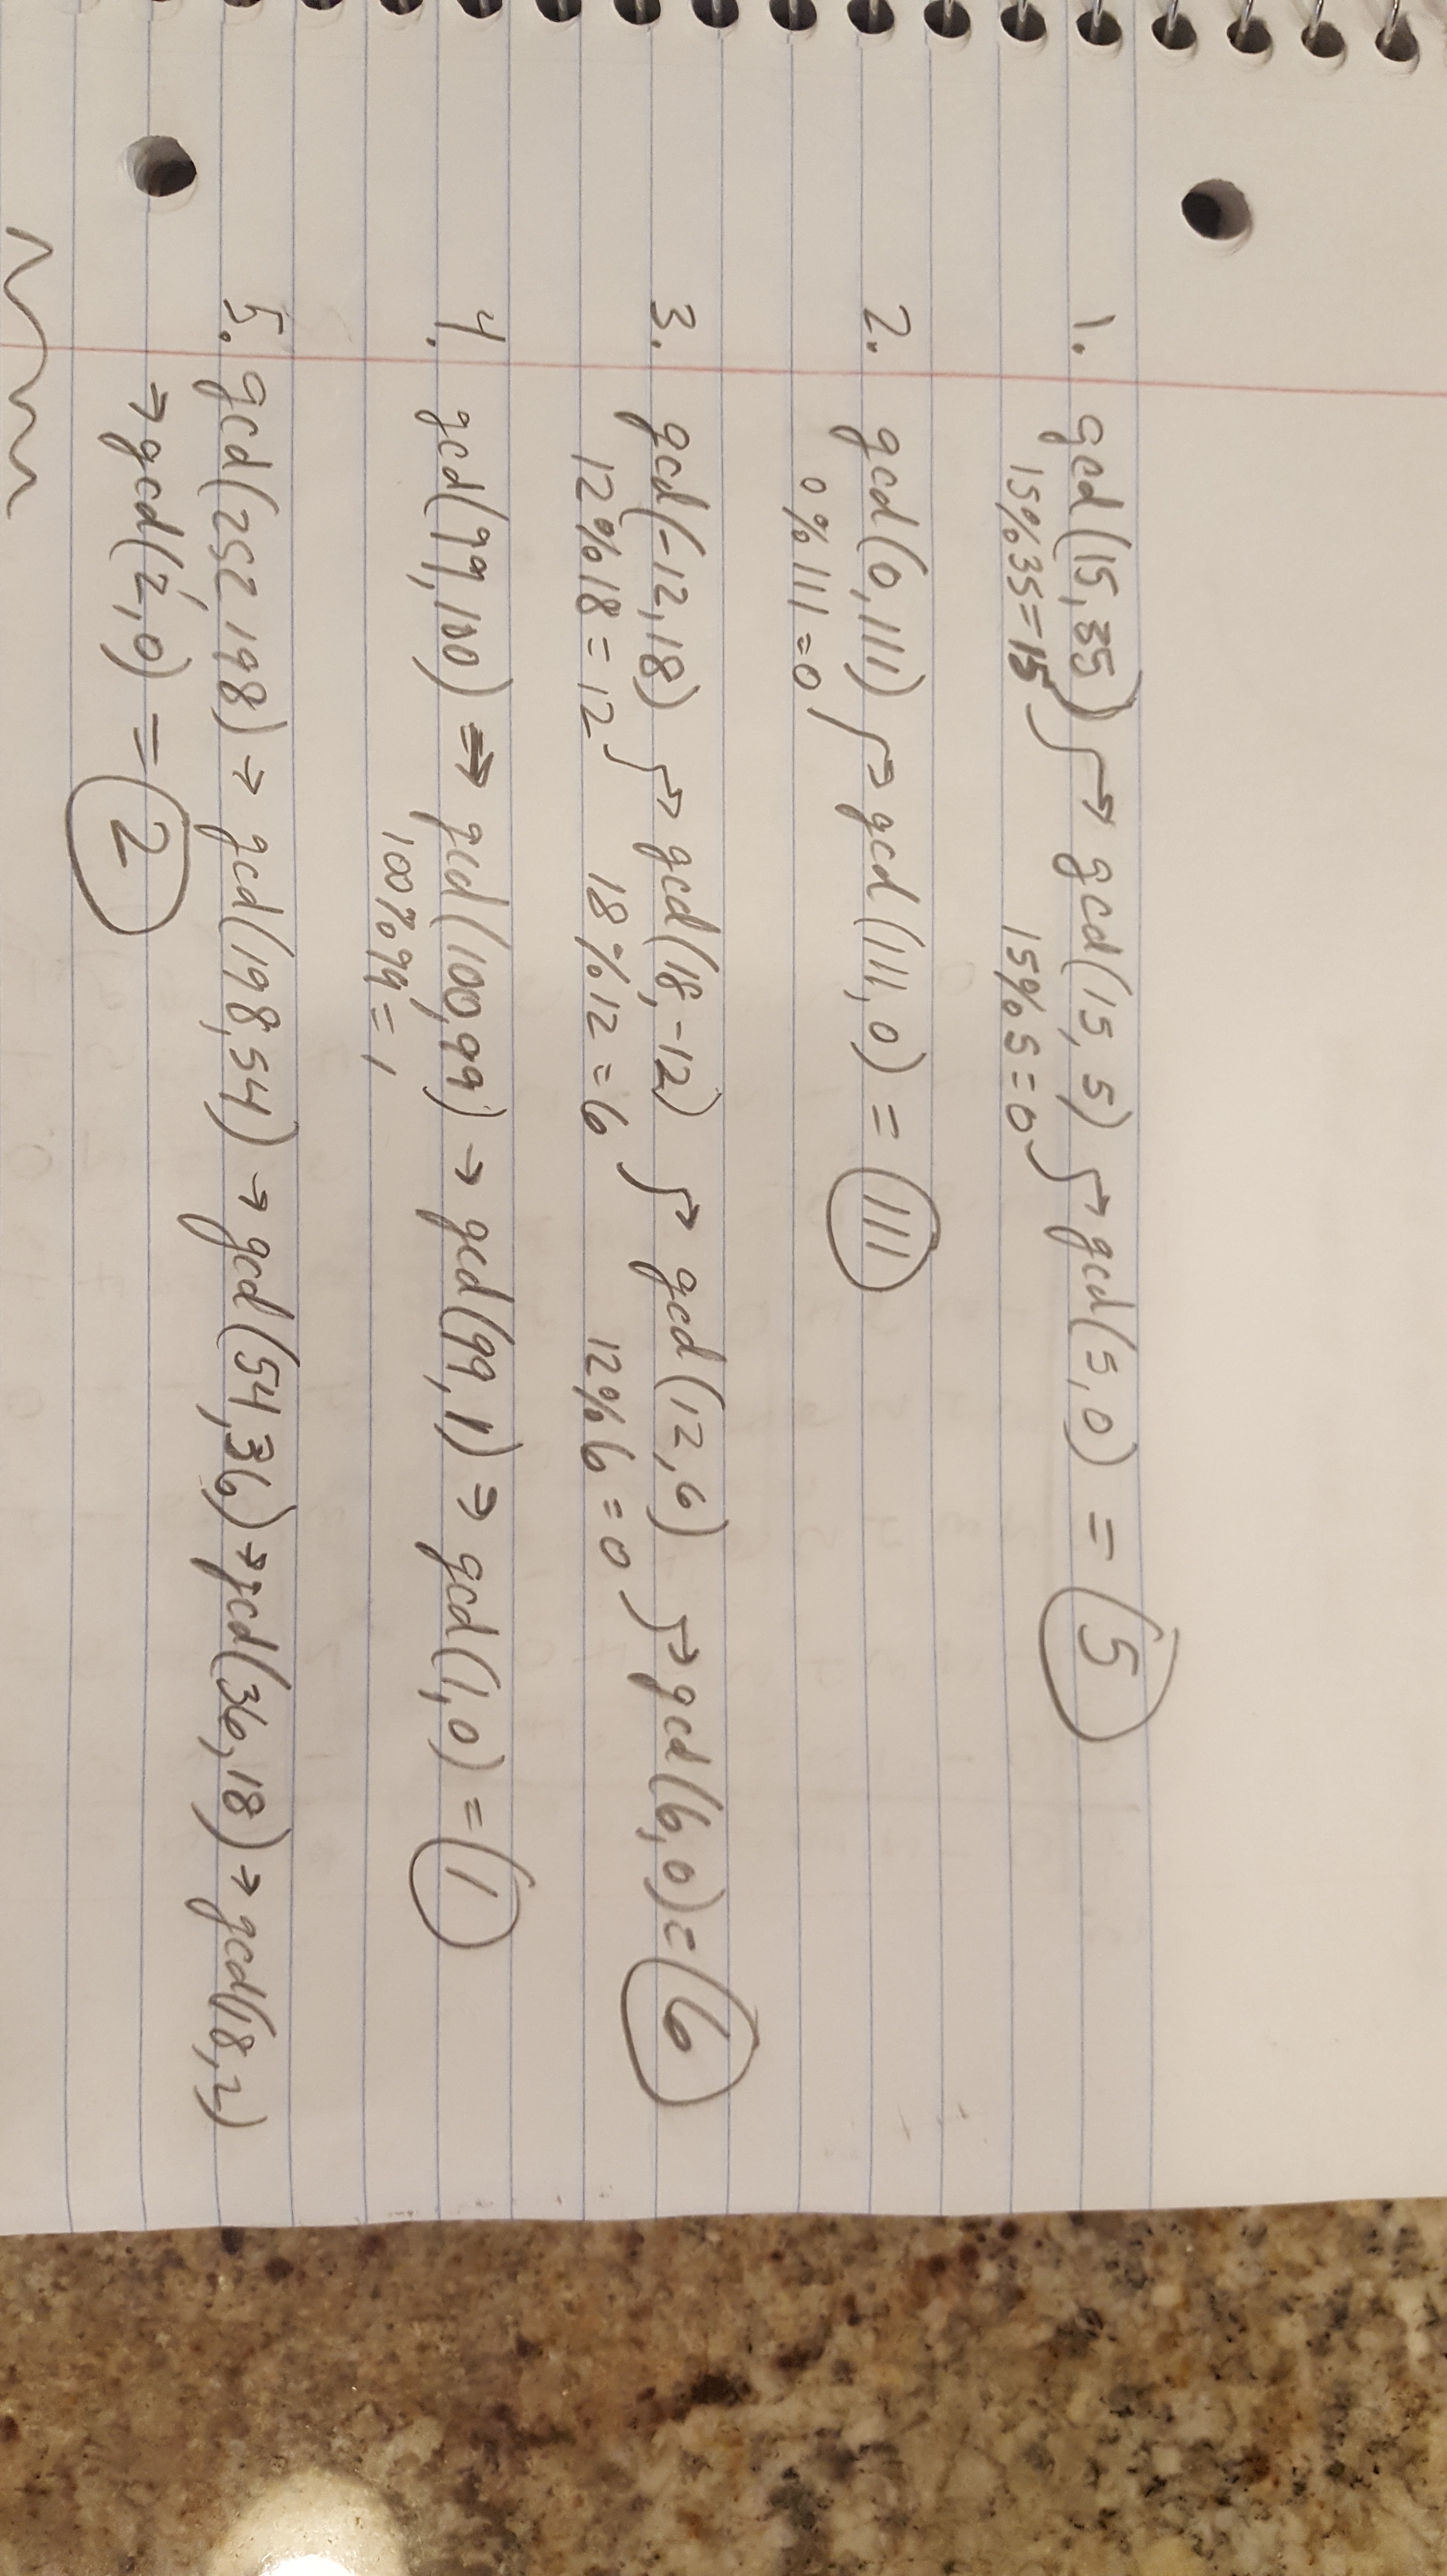 1. gcd(15,35) → gcd(15,5) → gcd(5,0) = 5
15%35=15 15%5=0
2. gcd(0,111) → gcd(111,0) = 111
0%111=0
3. gcd(-12,18) → gcd(18,-12) → gcd(12,6) → gcd(6,0) = 6
12%18=12 18%12=6 12%6=0
4. gcd(99,100) ⇒ gcd(100,99) → gcd(99,1) → gcd(1,0) = 1
100%99=1
5. gcd(252,198) → gcd(198,54) → gcd(54,36) → gcd(36,18) → gcd(18,2)
→ gcd(2,0) = 2